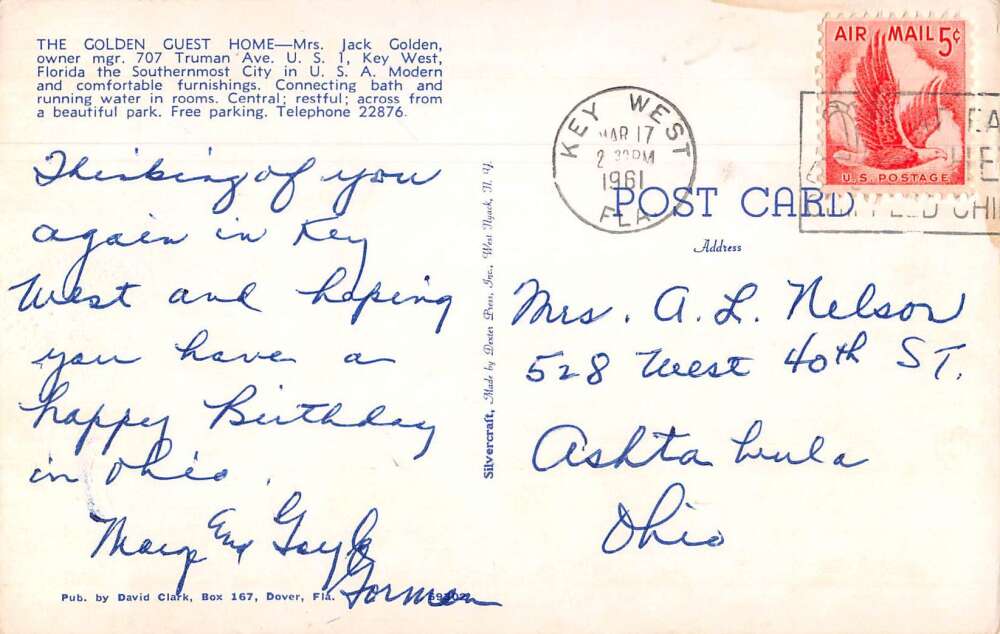 THE GOLDEN GUEST HOME—Mrs. Jack Golden,
owner mgr. 707 Truman Ave. U. S. 1, Key West,
Florida the Southernmost City in U. S. A. Modern
and comfortable furnishings. Connecting bath and
running water in rooms. Central; restful; across from
a beautiful park. Free parking. Telephone 22876.
Thinking of you
again in Key
West and hoping
you have a
happy Birthday
in Ohio.
Marge and Gayle
Gorman
Pub. by David Clark, Box 167, Dover, Fla.
Silvercraft, Made by Dexter Press, Inc., West Nyack, N. Y.
KEY WEST
MAR 17
2 PM
1961
FLA
AIR MAIL 5¢
U.S. POSTAGE
POST CARD
Address
Mrs. A. L. Nelson
528 West 40th ST.
Ashtabula
Ohio